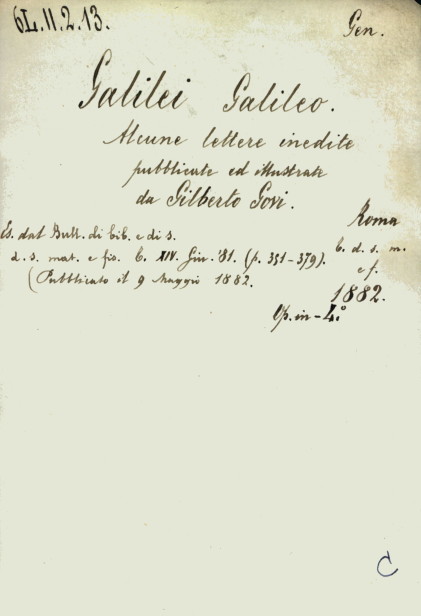 6L.11.2.13.
Gen.
Galilei Galileo.
Alcune lettere inedite
pubblicate ed illustrate
da Gilberto Govi.
Roma
Es. dal Bull. di bib. e di s.
b. d. s. m.
d. s. mat. e fis. t. XIV. Giu. '81. (p. 351-379).
e f.
(Pubblicato il 9 Maggio 1882.
1882.
Op. in-4.°
C